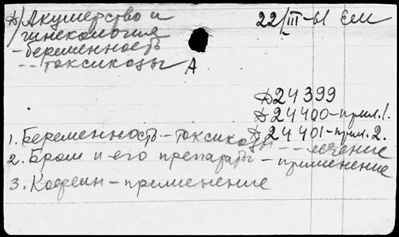 А) Акушерство и
гинекология
22/III-61 Ели
- беременность
-- токсикозы
А
Д24399
Д24400-прил.1.
Д24401-прил.2.
1. Беременность-токсикозы -- лечение
2. Бром и его препараты - применение
3. Кофеин - применение